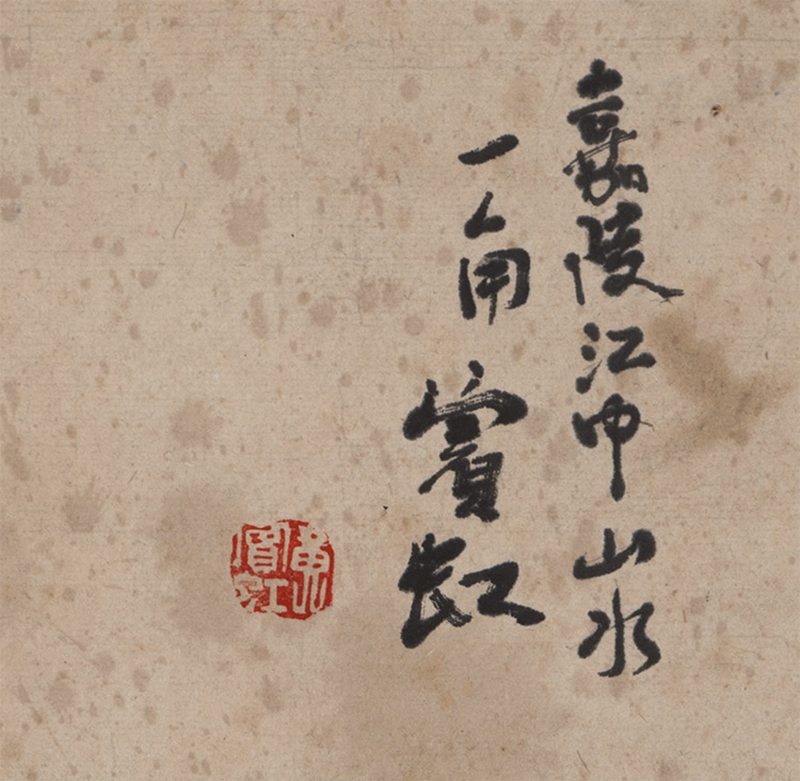 嘉陵江中山水
一角賓虹
黃賓虹